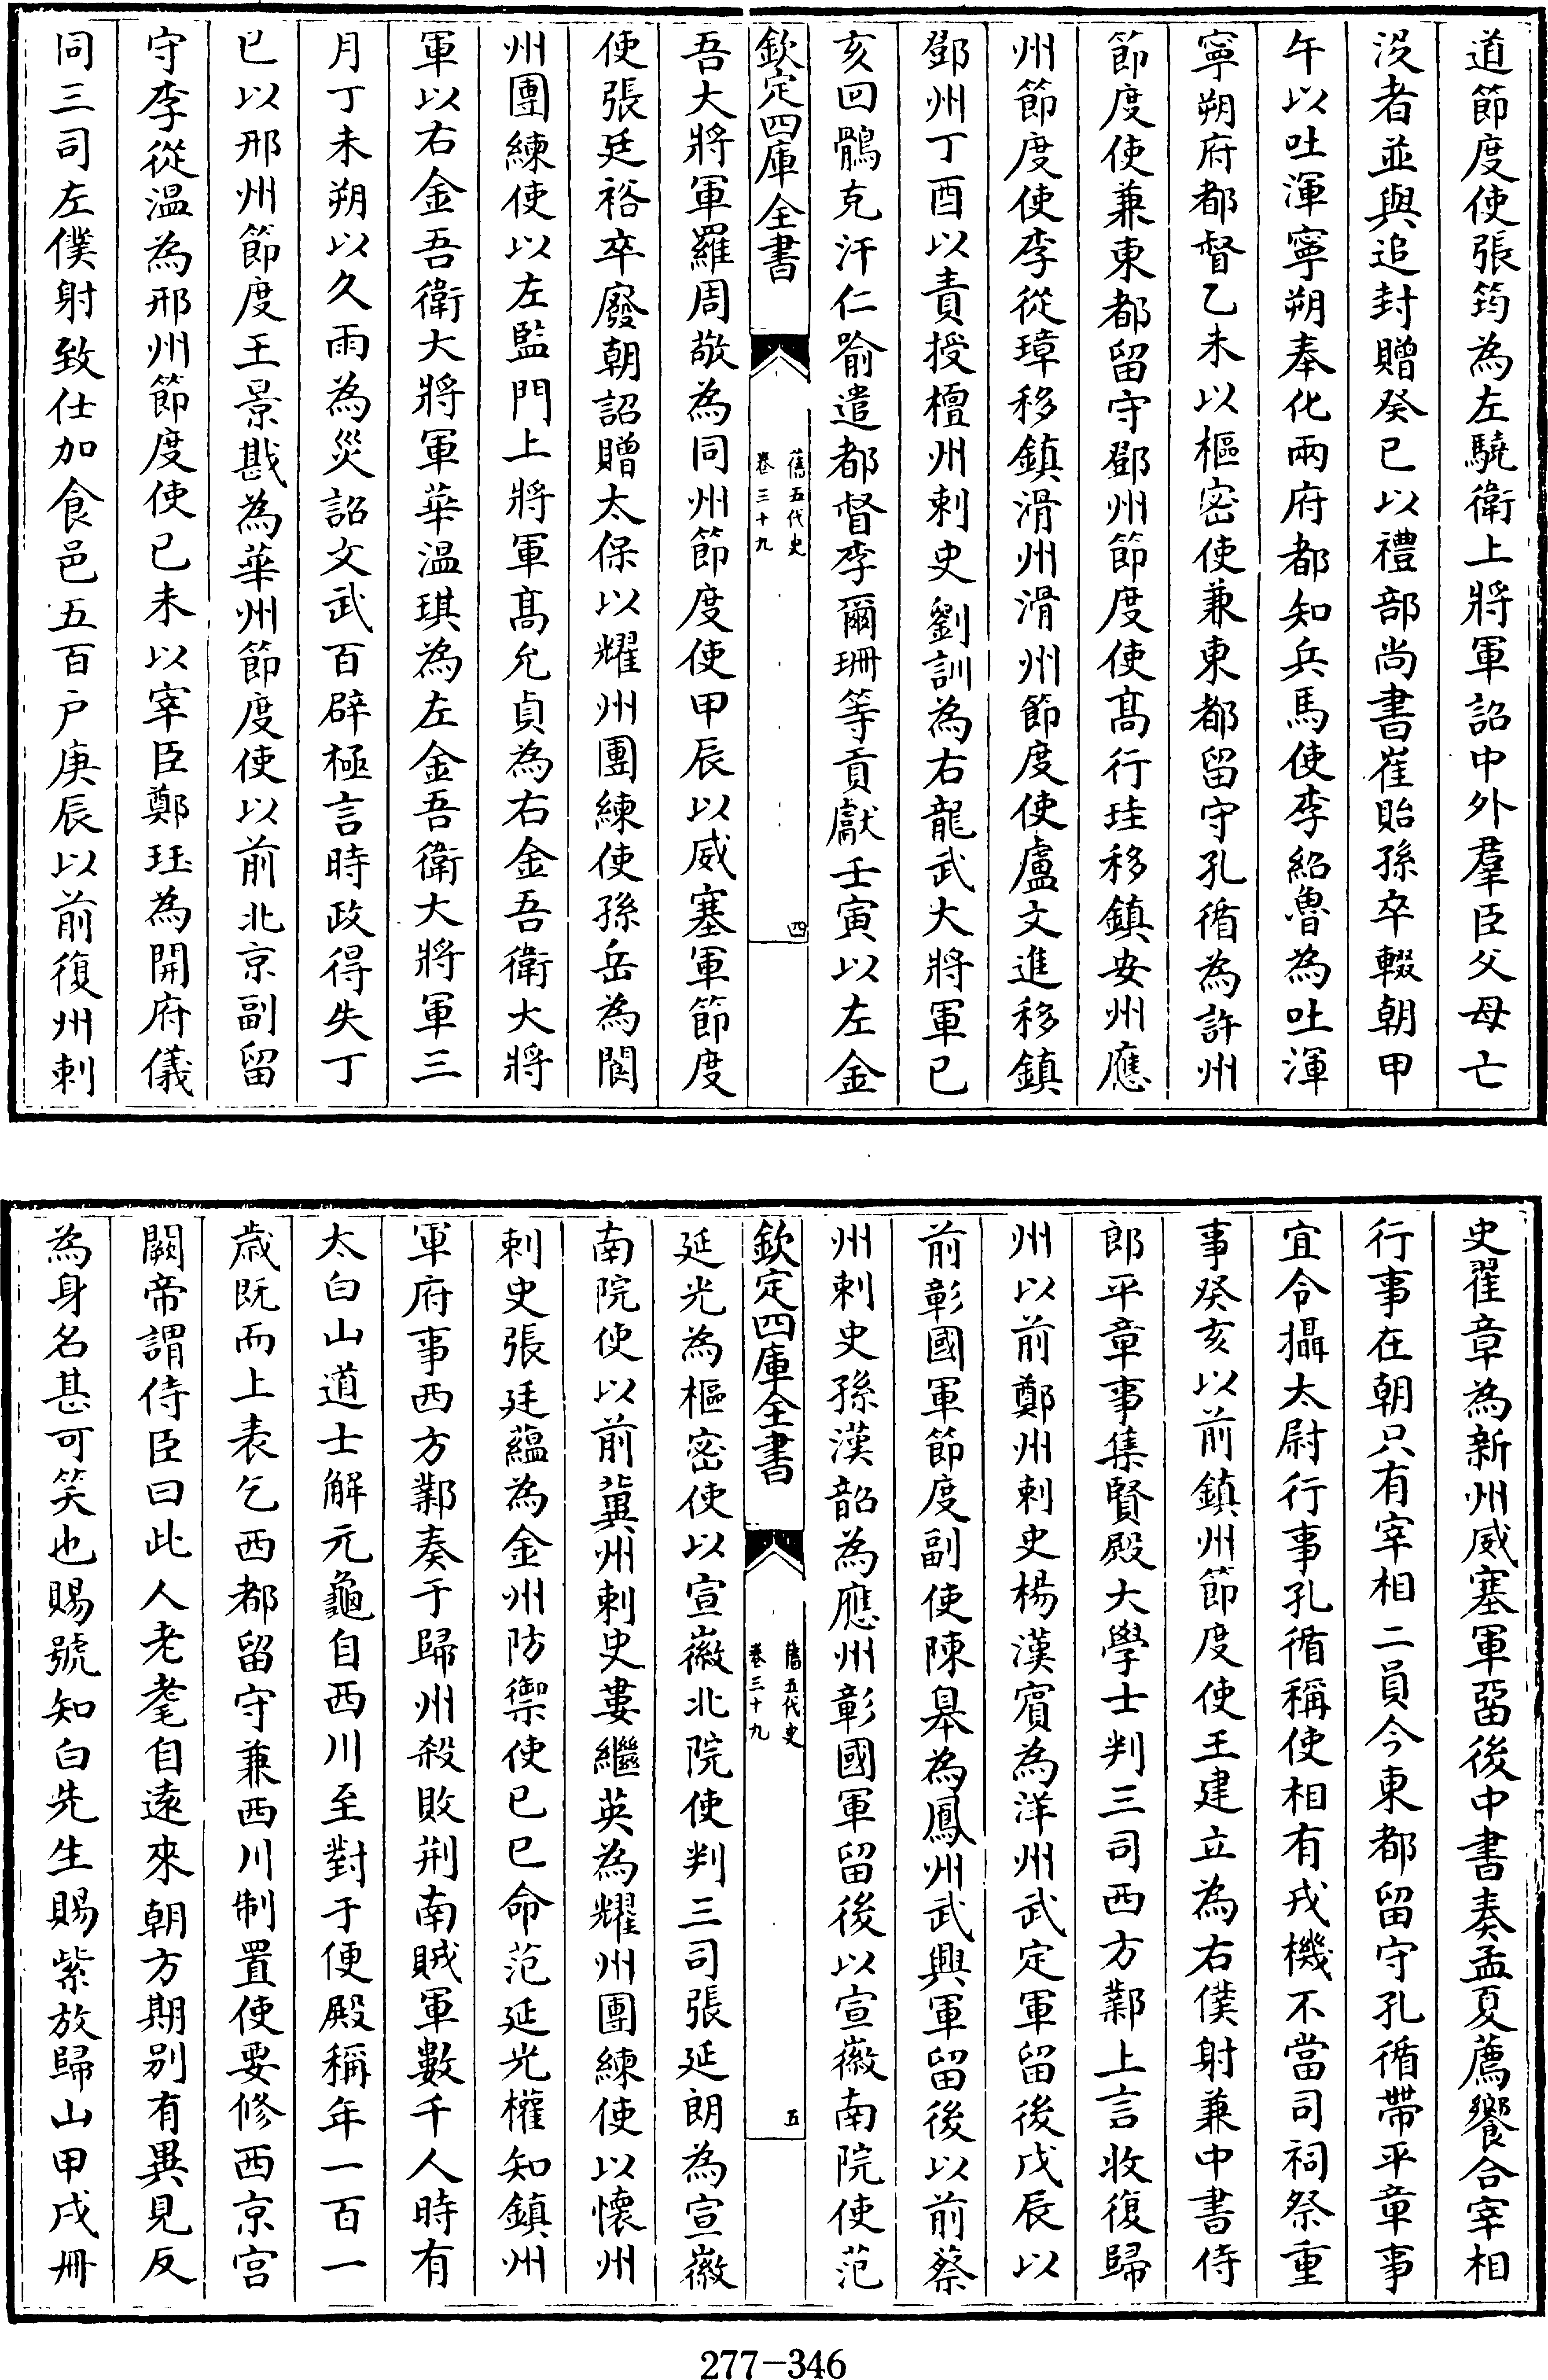 道節度使張筠為左驍衛上將軍詔中外羣臣父母亡
沒者並與追封贈癸巳以禮部尚書崔貽孫卒輟朝甲
午以吐渾寧朔奉化兩府都知兵馬使李紹魯為吐渾
寧朔府都督乙未以樞密使兼東都留守孔循為許州
節度使兼東都留守鄧州節度使髙行珪移鎮安州應
州節度使李從璋移鎮滑州滑州節度使盧文進移鎮
鄧州丁酉以責授檀州刺史劉訓為右龍武大將軍己
亥回鶻克汗仁喻遣都督李爾珊等貢獻壬寅以左金
欽定四庫全書
舊五代史
卷三十九
四
吾大將軍羅周敬為同州節度使甲辰以威塞軍節度
使張廷裕卒廢朝詔贈太保以耀州團練使孫岳為閬
州團練使以左監門上將軍髙允貞為右金吾衛大將
軍以右金吾衛大將軍華温琪為左金吾衛大將軍三
月丁未朔以久雨為災詔文武百辟極言時政得失丁
巳以邢州節度王景戡為華州節度使以前北京副留
守李從温為邢州節度使己未以宰臣鄭珏為開府儀
同三司左僕射致仕加食邑五百户庚辰以前復州刺
史翟章為新州威塞軍留後中書奏孟夏薦饗合宰相
行事在朝只有宰相二員今東都留守孔循帶平章事
宜令攝太尉行事孔循稱使相有戎機不當司祠祭重
事癸亥以前鎮州節度使王建立為右僕射兼中書侍
郎平章事集賢殿大學士判三司西方鄴上言收復歸
州以前鄭州刺史楊漢賓為洋州武定軍留後戊辰以
前彰國軍節度副使陳皋為鳳州武興軍留後以前蔡
州刺史孫漢韶為應州彰國軍留後以宣徽南院使范
欽定四庫全書
舊五代史
卷三十九
五
延光為樞密使以宣徽北院使判三司張延朗為宣徽
南院使以前冀州刺史婁繼英為耀州團練使以懷州
刺史張廷蘊為金州防禦使己巳命范延光權知鎮州
軍府事西方鄴奏于歸州殺敗荆南賊軍數千人時有
太白山道士解元龜自西川至對于便殿稱年一百一
歲既而上表乞西都留守兼西川制置使要修西京宫
闕帝謂侍臣曰此人老耄自遠來朝方期别有異見反
為身名甚可笑也賜號知白先生賜紫放歸山甲戌冊
277-346